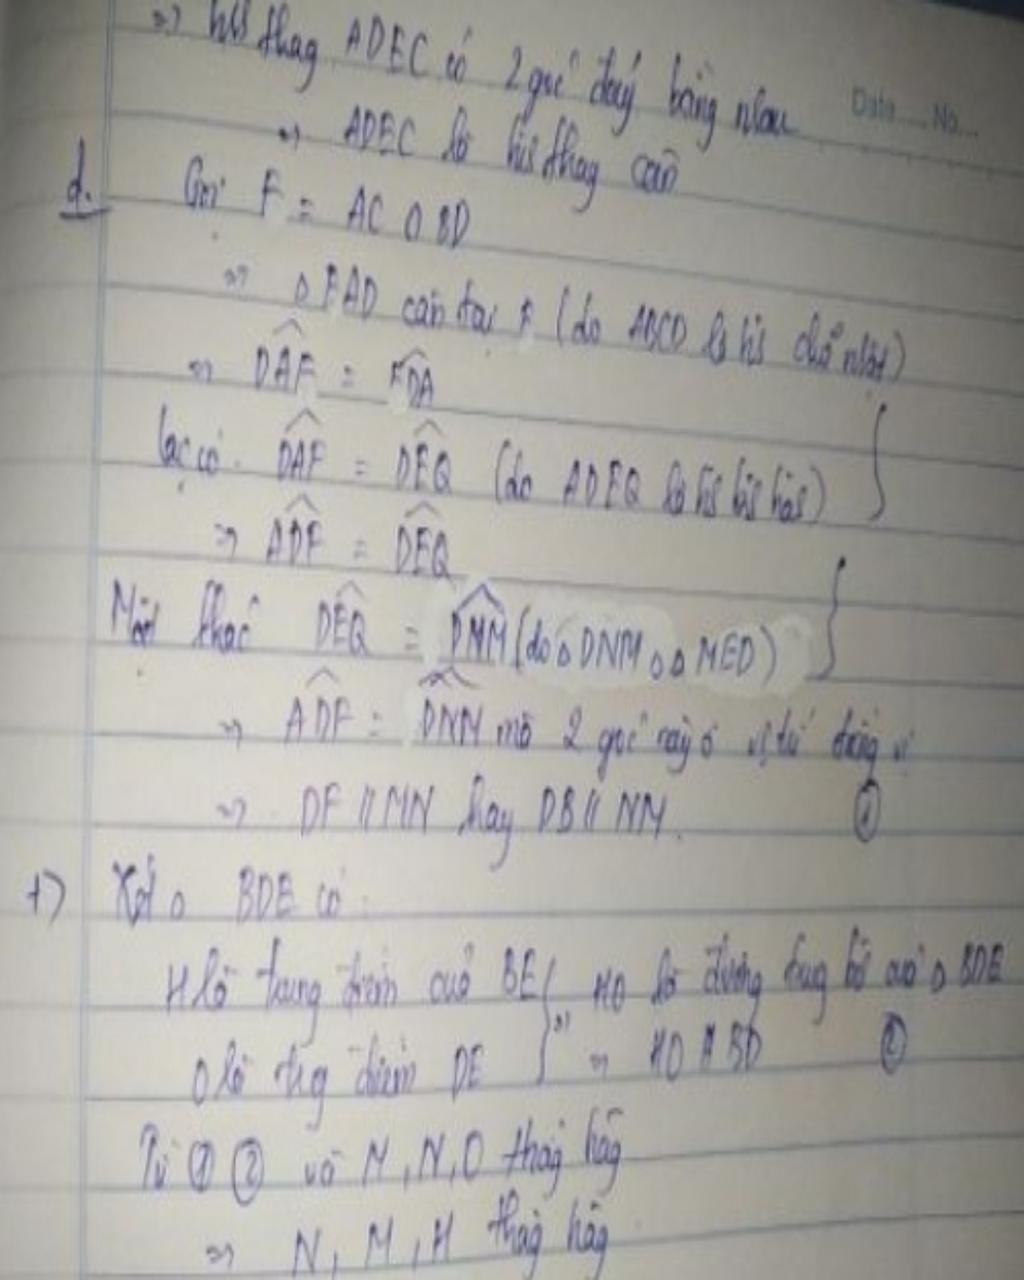 => hs thag ADEC có 2 góc đáy bằng nhau
Date ..... No...
=> ADEC là hs thag cân
d. Gọi F = AC ∩ BD
=> Δ FAD cân tại F (do ABCD là hs chữ nhật)
=> DAF = FDA
Lại có DAF = DEQ (do ADEQ là hs bs hàs)
=> ADF = DEQ
Mặt khác DEQ = DNM (do Δ DNM ∽ Δ MED)
=> ADF = DNM mà 2 góc này ở vị trí đồng vị
=> DF // MN hay DB // NM. ①
+) Xét Δ BDE có
H là trung điểm của BE } => HO là đường trug bì của Δ BDE
O là trg điểm DE => HO // BD ②
Từ ① ② và M, N, O thẳg hàg
=> N, M, H thẳg hàg